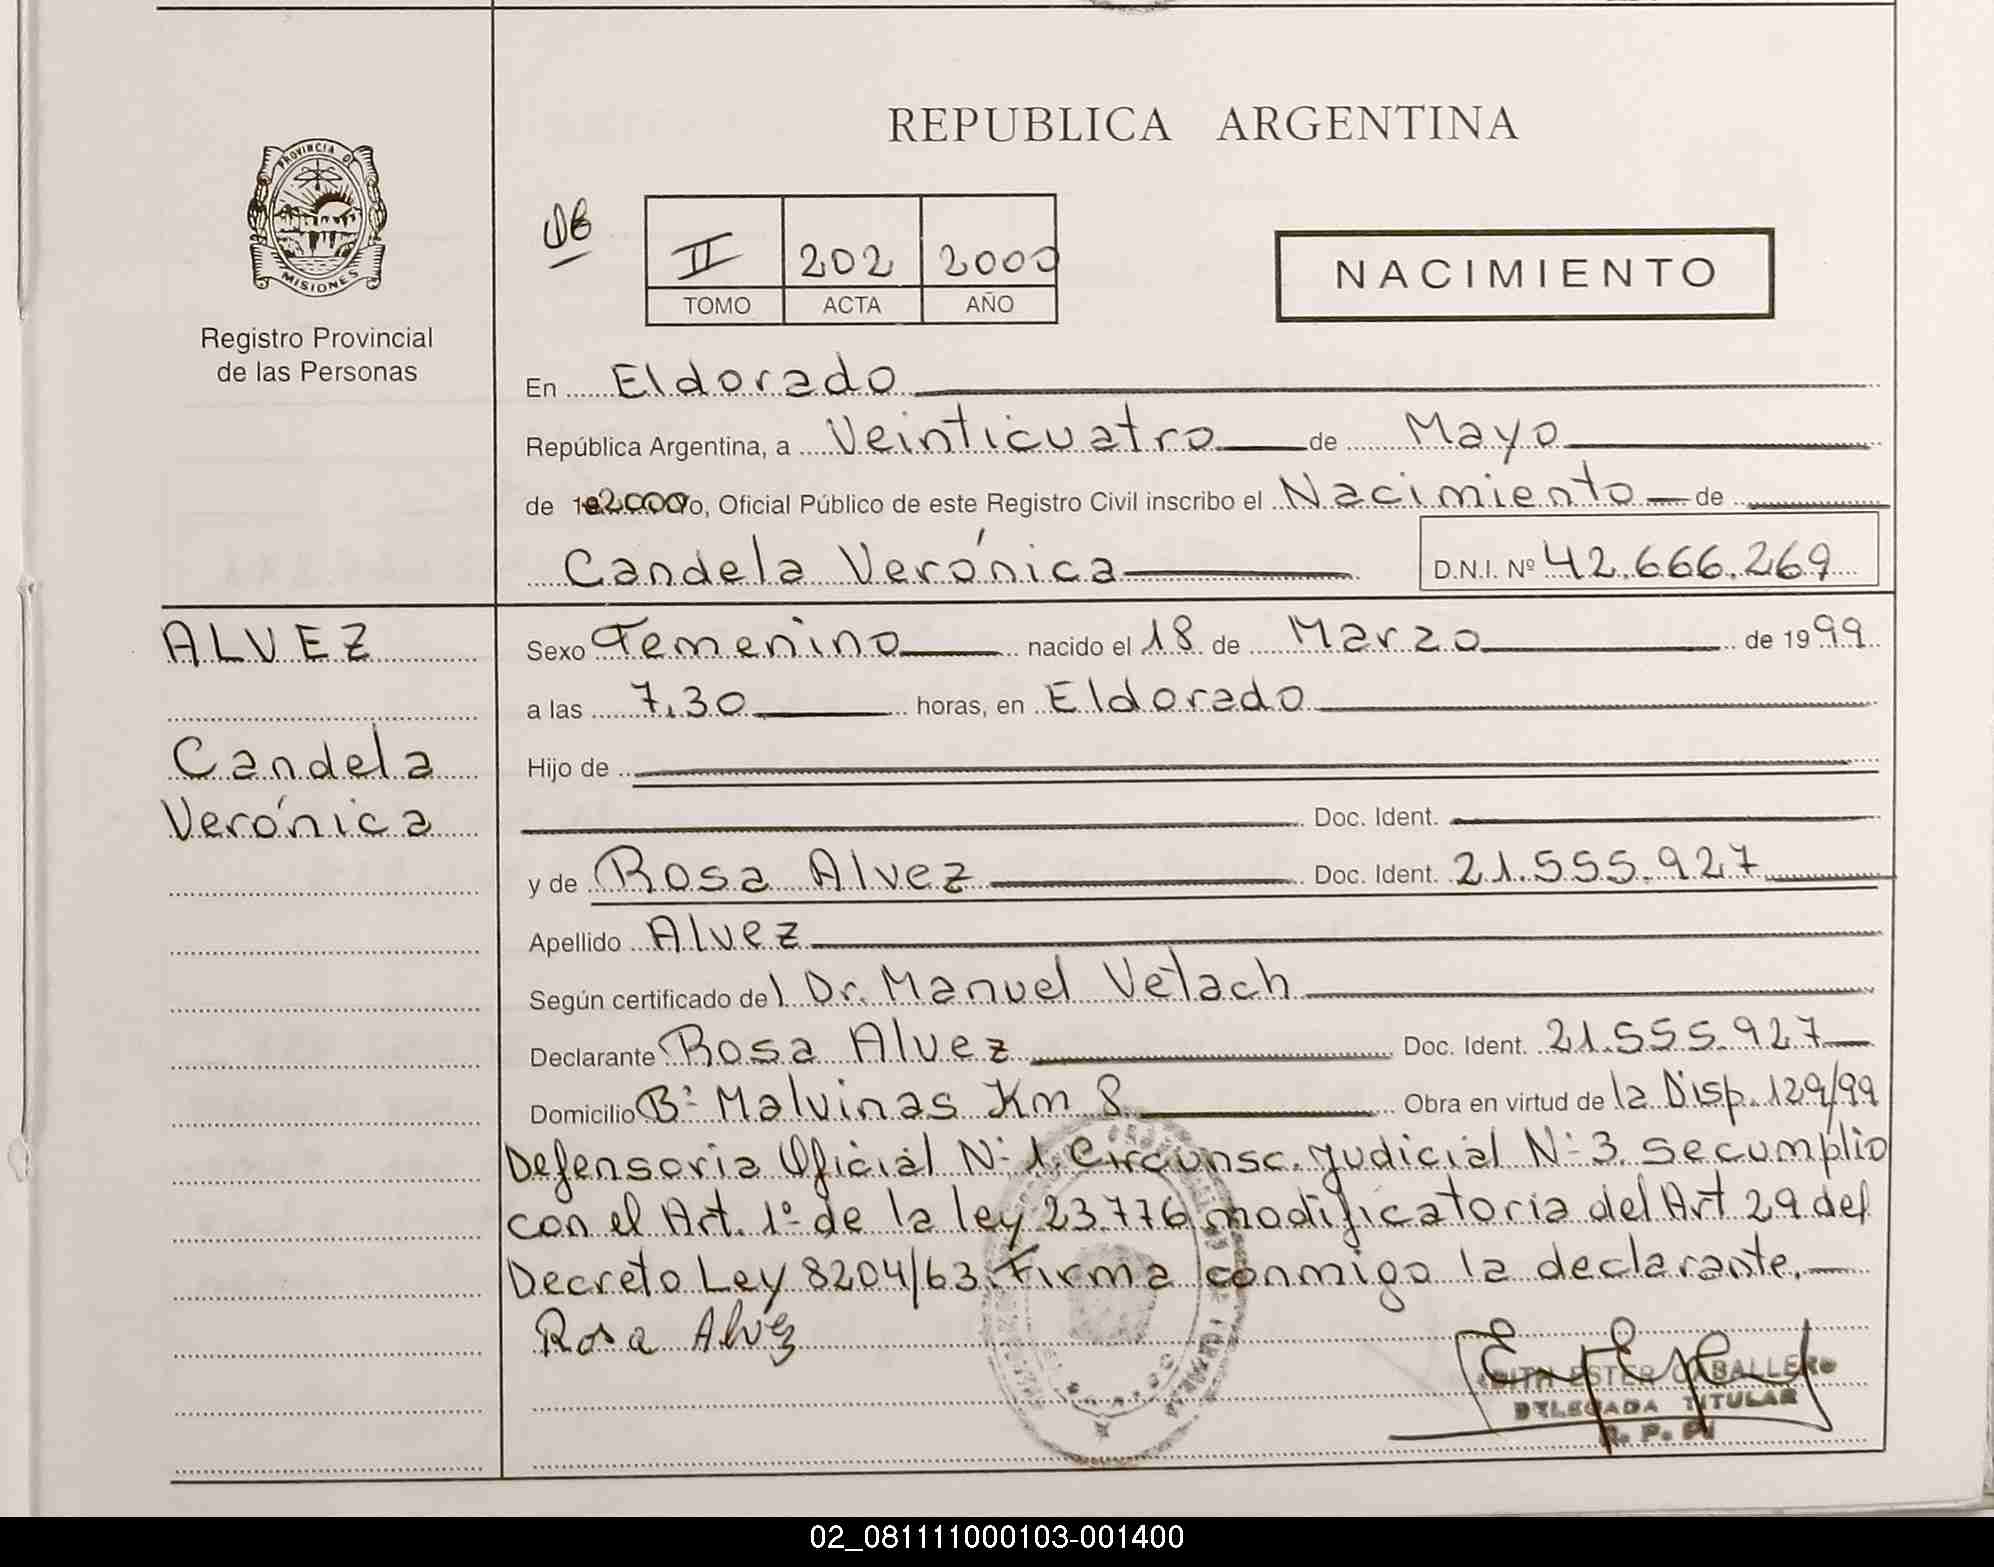 REPUBLICA ARGENTINA
PROVINCIA DE
MISIONES
Registro Provincial
de las Personas
II 202 2000
TOMO ACTA AÑO
NACIMIENTO
En Eldorado
República Argentina, a Veinticuatro de Mayo
de 2000 Yo, Oficial Público de este Registro Civil inscribo el Nacimiento de
Candela Verónica D.N.I. Nº 42.666.269
ALVEZ
Candela
Verónica
Sexo Femenino nacido el 18 de Marzo de 1999
a las 7.30 horas, en Eldorado
Hijo de
Doc. Ident.
y de Rosa Alvez Doc. Ident. 21.555.927
Apellido Alvez
Según certificado del Dr. Manuel Velach
Declarante Rosa Alvez Doc. Ident. 21.555.927
Domicilio Bº Malvinas Km 8 Obra en virtud de la Disp. 129/99
Defensoria Oficial Nº 1. Circunsc. Judicial Nº 3. se cumplio
con el Art. 1º de la ley 23.776 modificatoria del Art 29 del
Decreto Ley 8204/63. Firma conmigo la declarante.
Rosa Alvez
EDITH ESTER CABALLERO
DELEGADA TITULAR
R. P. P.
02_081111000103-001400